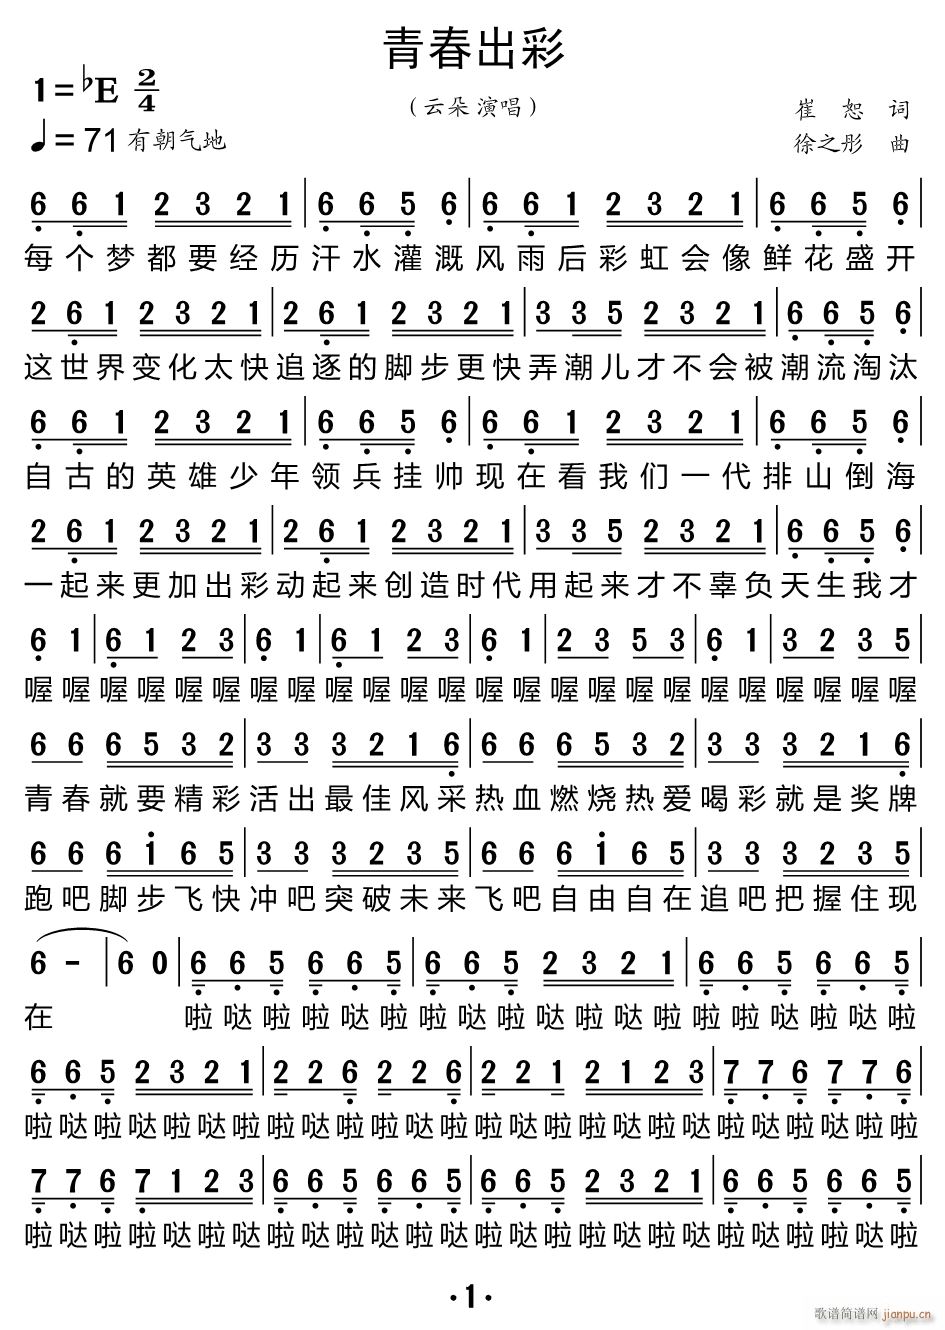 青春出彩
1=♭E 2/4
（云朵 演唱）
崔 恕 词
♩=71 有朝气地
徐之彤 曲
6 6 1 2 3 2 1 | 6 6 5 6 | 6 6 1 2 3 2 1 | 6 6 5 6 |
每个梦都要经历汗水灌溉风雨后彩虹会像鲜花盛开
2 6 1 2 3 2 1 | 2 6 1 2 3 2 1 | 3 3 5 2 3 2 1 | 6 6 5 6 |
这世界变化太快追逐的脚步更快弄潮儿才不会被潮流淘汰
6 6 1 2 3 2 1 | 6 6 5 6 | 6 6 1 2 3 2 1 | 6 6 5 6 |
自古的英雄少年领兵挂帅现在看我们一代排山倒海
2 6 1 2 3 2 1 | 2 6 1 2 3 2 1 | 3 3 5 2 3 2 1 | 6 6 5 6 |
一起来更加出彩动起来创造时代用起来才不辜负天生我才
6 1 | 6 1 2 3 | 6 1 | 6 1 2 3 | 6 1 | 2 3 5 3 | 6 1 | 3 2 3 5 |
喔喔喔喔喔喔喔喔喔喔喔喔喔喔喔喔喔喔喔喔喔喔喔喔
6 6 6 5 3 2 | 3 3 3 2 1 6 | 6 6 6 5 3 2 | 3 3 3 2 1 6 |
青春就要精彩活出最佳风采热血燃烧热爱喝彩就是奖牌
6 6 6 i 6 5 | 3 3 3 2 3 5 | 6 6 6 i 6 5 | 3 3 3 2 3 5 |
跑吧脚步飞快冲吧突破未来飞吧自由自在追吧把握住现
6 - | 6 0 | 6 6 5 6 6 5 | 6 6 5 2 3 2 1 | 6 6 5 6 6 5 |
在 啦哒啦啦哒啦啦哒啦哒啦哒啦啦哒啦哒啦
6 6 5 2 3 2 1 | 2 2 6 2 2 6 | 2 2 1 2 1 2 3 | 7 7 6 7 7 6 |
啦哒啦哒啦哒啦啦哒啦啦哒啦啦哒啦哒啦哒啦啦哒啦啦哒啦
7 7 6 7 1 2 3 | 6 6 5 6 6 5 | 6 6 5 2 3 2 1 | 6 6 5 6 6 5 |
啦哒啦哒啦哒啦啦哒啦啦哒啦啦哒啦哒啦哒啦啦哒啦啦哒啦
·1·
歌谱简谱网 jianpu.cn